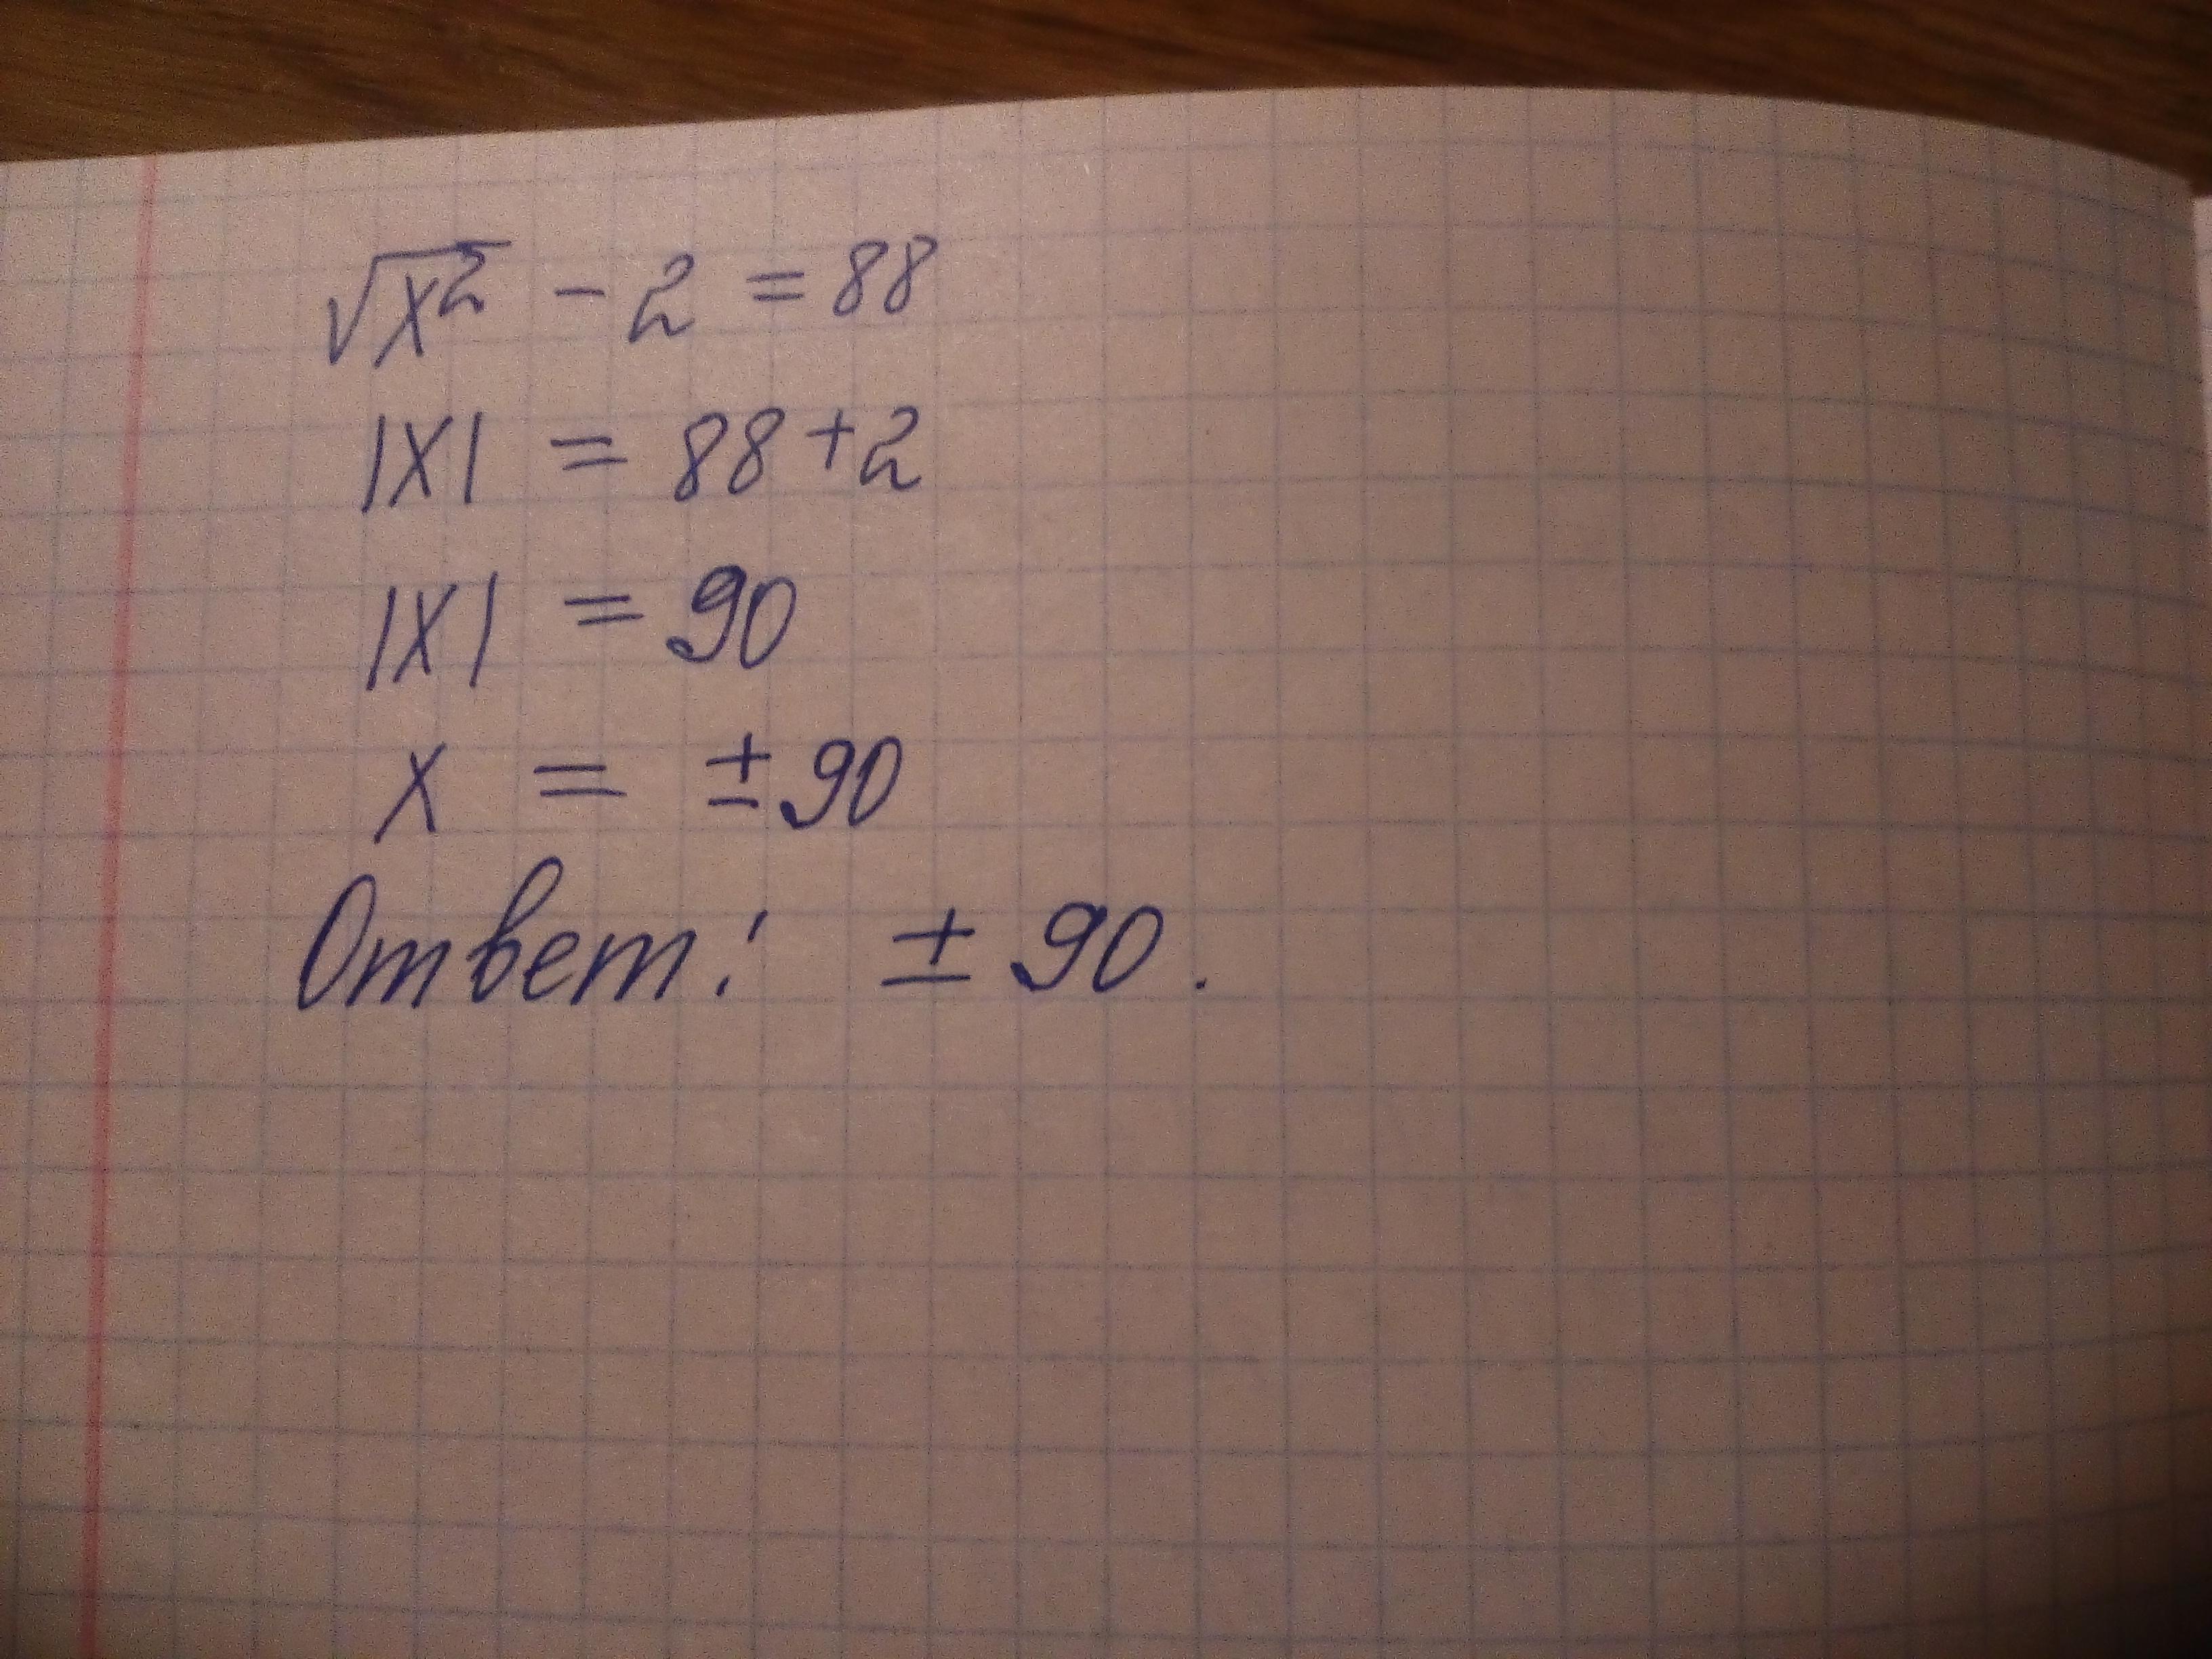 √x² - 2 = 88
|x| = 88 + 2
|x| = 90
x = ± 90
Ответ: ± 90.